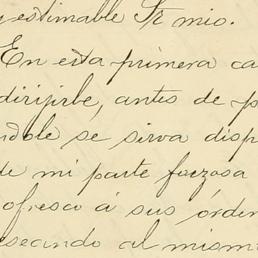 y estimable Sr mio.
En esta primera ca
dirijirle, antes de p
ndole se sirva disp
de mi parte forzosa
ofresco á sus órden
eseando al mismo